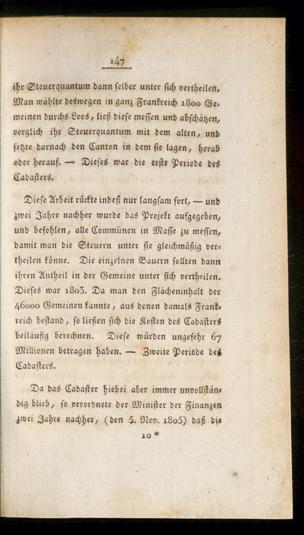 147
ihr Steuerquantum dann selber unter sich vertheilen.
Man wählte deswegen in ganz Frankreich 1800 Ge-
meinen durchs Loos, ließ diese messen und abschätzen,
verglich ihr Steuerquantum mit dem alten, und
setzte darnach den Canton in dem sie lagen, herab
oder herauf. — Dieses war die erste Periode des
Cadasters.
Diese Arbeit rückte indeß nur langsam fort, — und
zwei Jahre nachher wurde das Projekt aufgegeben,
und befohlen, alle Communen in Masse zu messen,
damit man die Steuern unter sie gleichmäßig ver-
theilen könne. Die einzelnen Bauern sollten dann
ihren Antheil in der Gemeine unter sich vertheilen.
Dieses war 1803. Da man den Flächeninhalt der
46000 Gemeinen kannte, aus denen damals Frank-
reich bestand, so ließen sich die Kosten des Cadasters
beiläufig berechnen. Diese würden ungefehr 67
Millionen betragen haben. — Zweite Periode des
Cadasters.
Da das Cadaster hiebei aber immer unvollstän-
dig blieb, so verordnete der Minister der Finanzen
zwei Jahre nachher, (den 5. Nov. 1805) daß die
10*